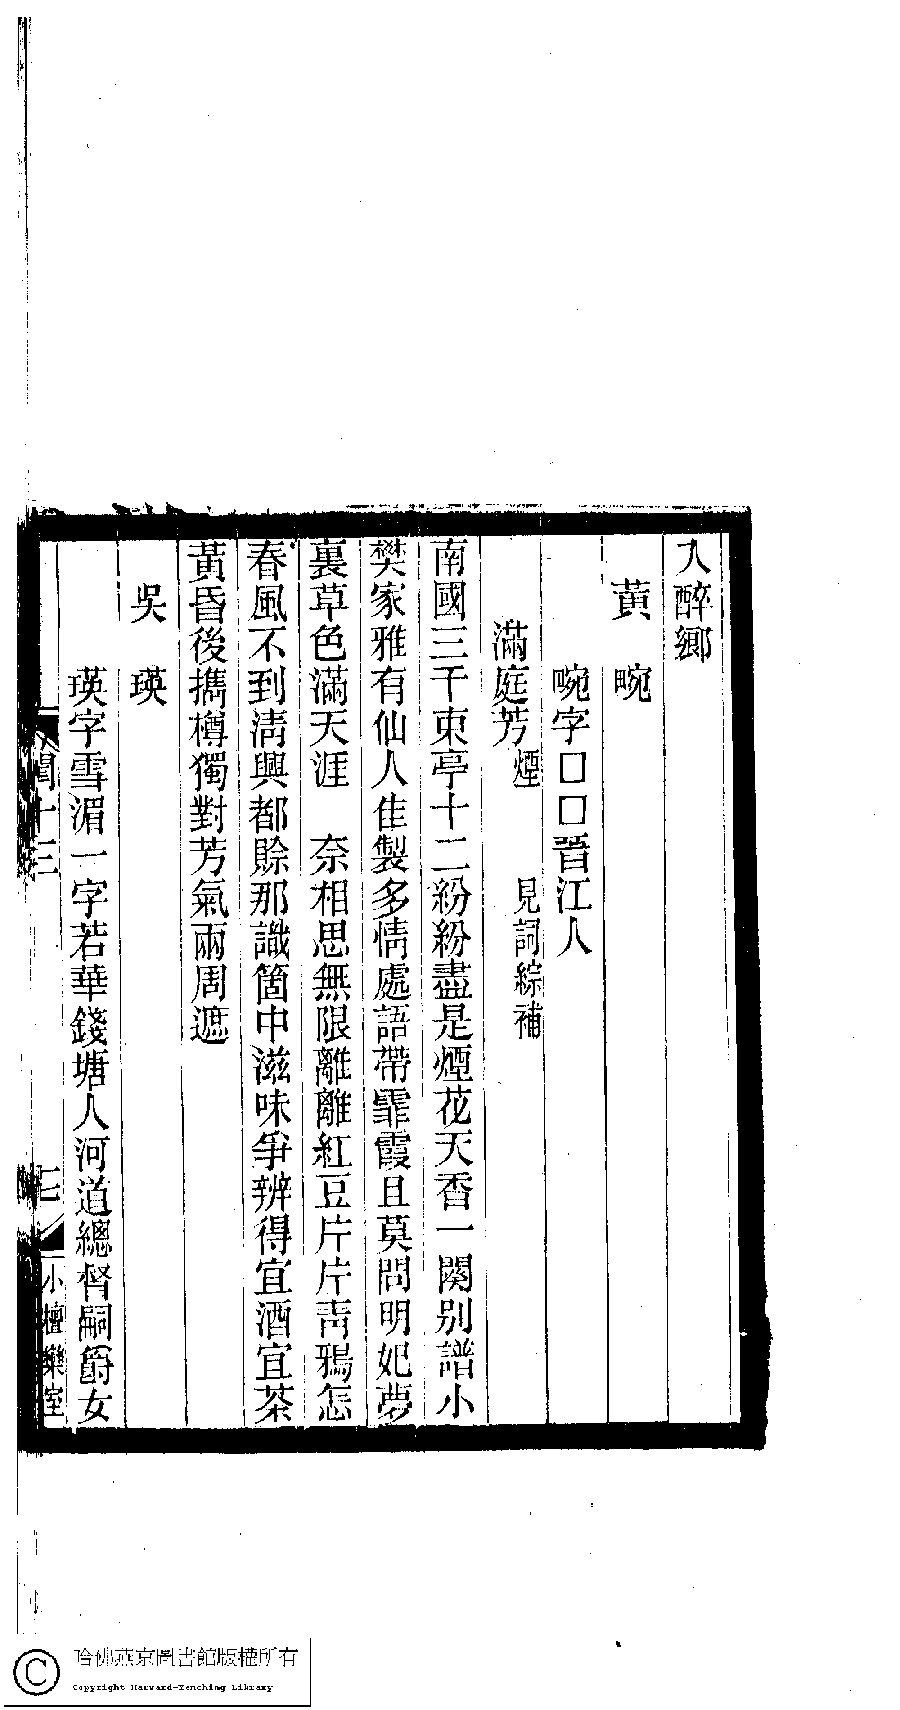 入醉鄉
黃　畹
畹字□□晉江人
滿庭芳 煙　見詞綜補
南國三千東亭十二紛紛盡是煙花天香一闋別譜小
樊家雅有仙人佳製多情處語帶霏霞且莫問明妃夢
裏草色滿天涯　奈相思無限離離紅豆片片靑鴉怎
春風不到淸興都賖那識箇中滋味爭辨得宜酒宜茶
黃昏後攜樽獨對芳氣兩周遮
吳　瑛
瑛字雪湄一字若華錢塘人河道總督嗣爵女
閨十三
七
小檀欒室
哈佛燕京圖書館版權所有
Copyright Harvard-Yenching Library